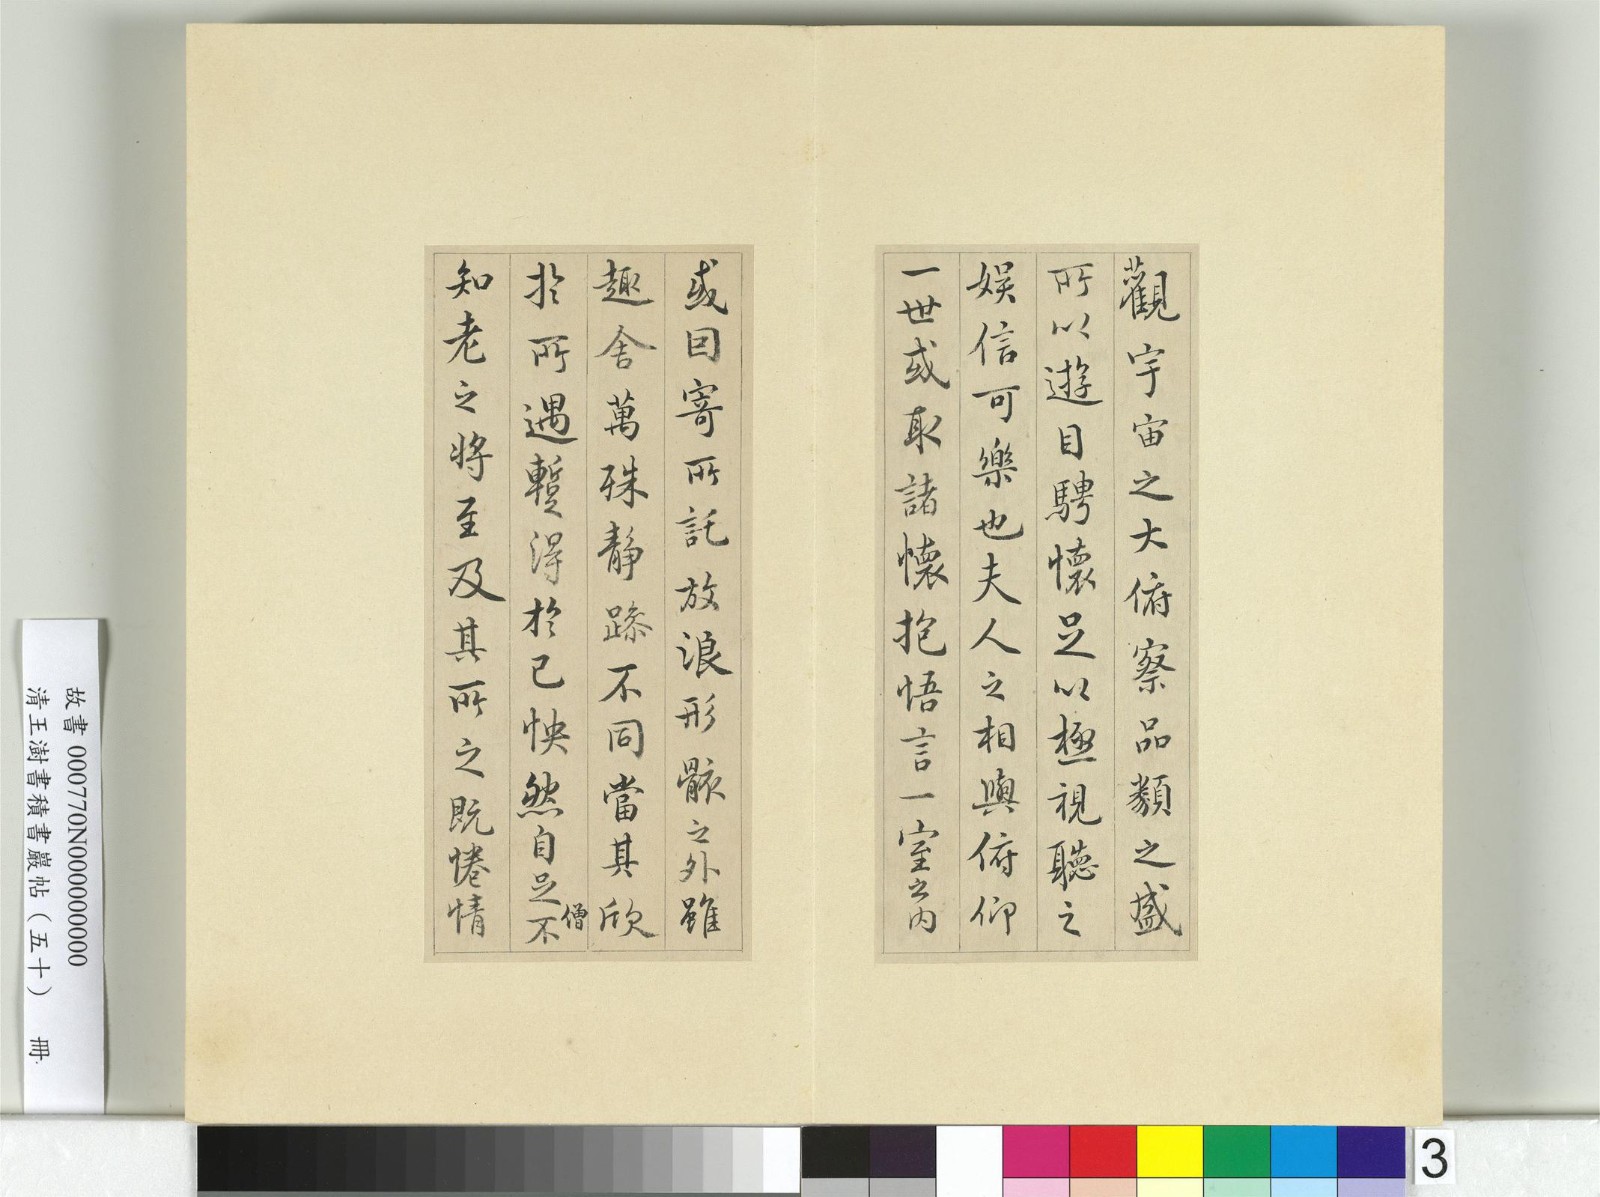 觀宇宙之大俯察品類之盛
所以遊目騁懷足以極視聽之
娛信可樂也夫人之相與俯仰
一世或取諸懷抱悟言一室之內
或因寄所託放浪形骸之外雖
趣舍萬殊靜躁不同當其欣
僧
於所遇暫得於己怏然自足不
知老之將至及其所之既惓情
故書 000770N000000000
清王澍書積書巖帖（五十） 冊
3